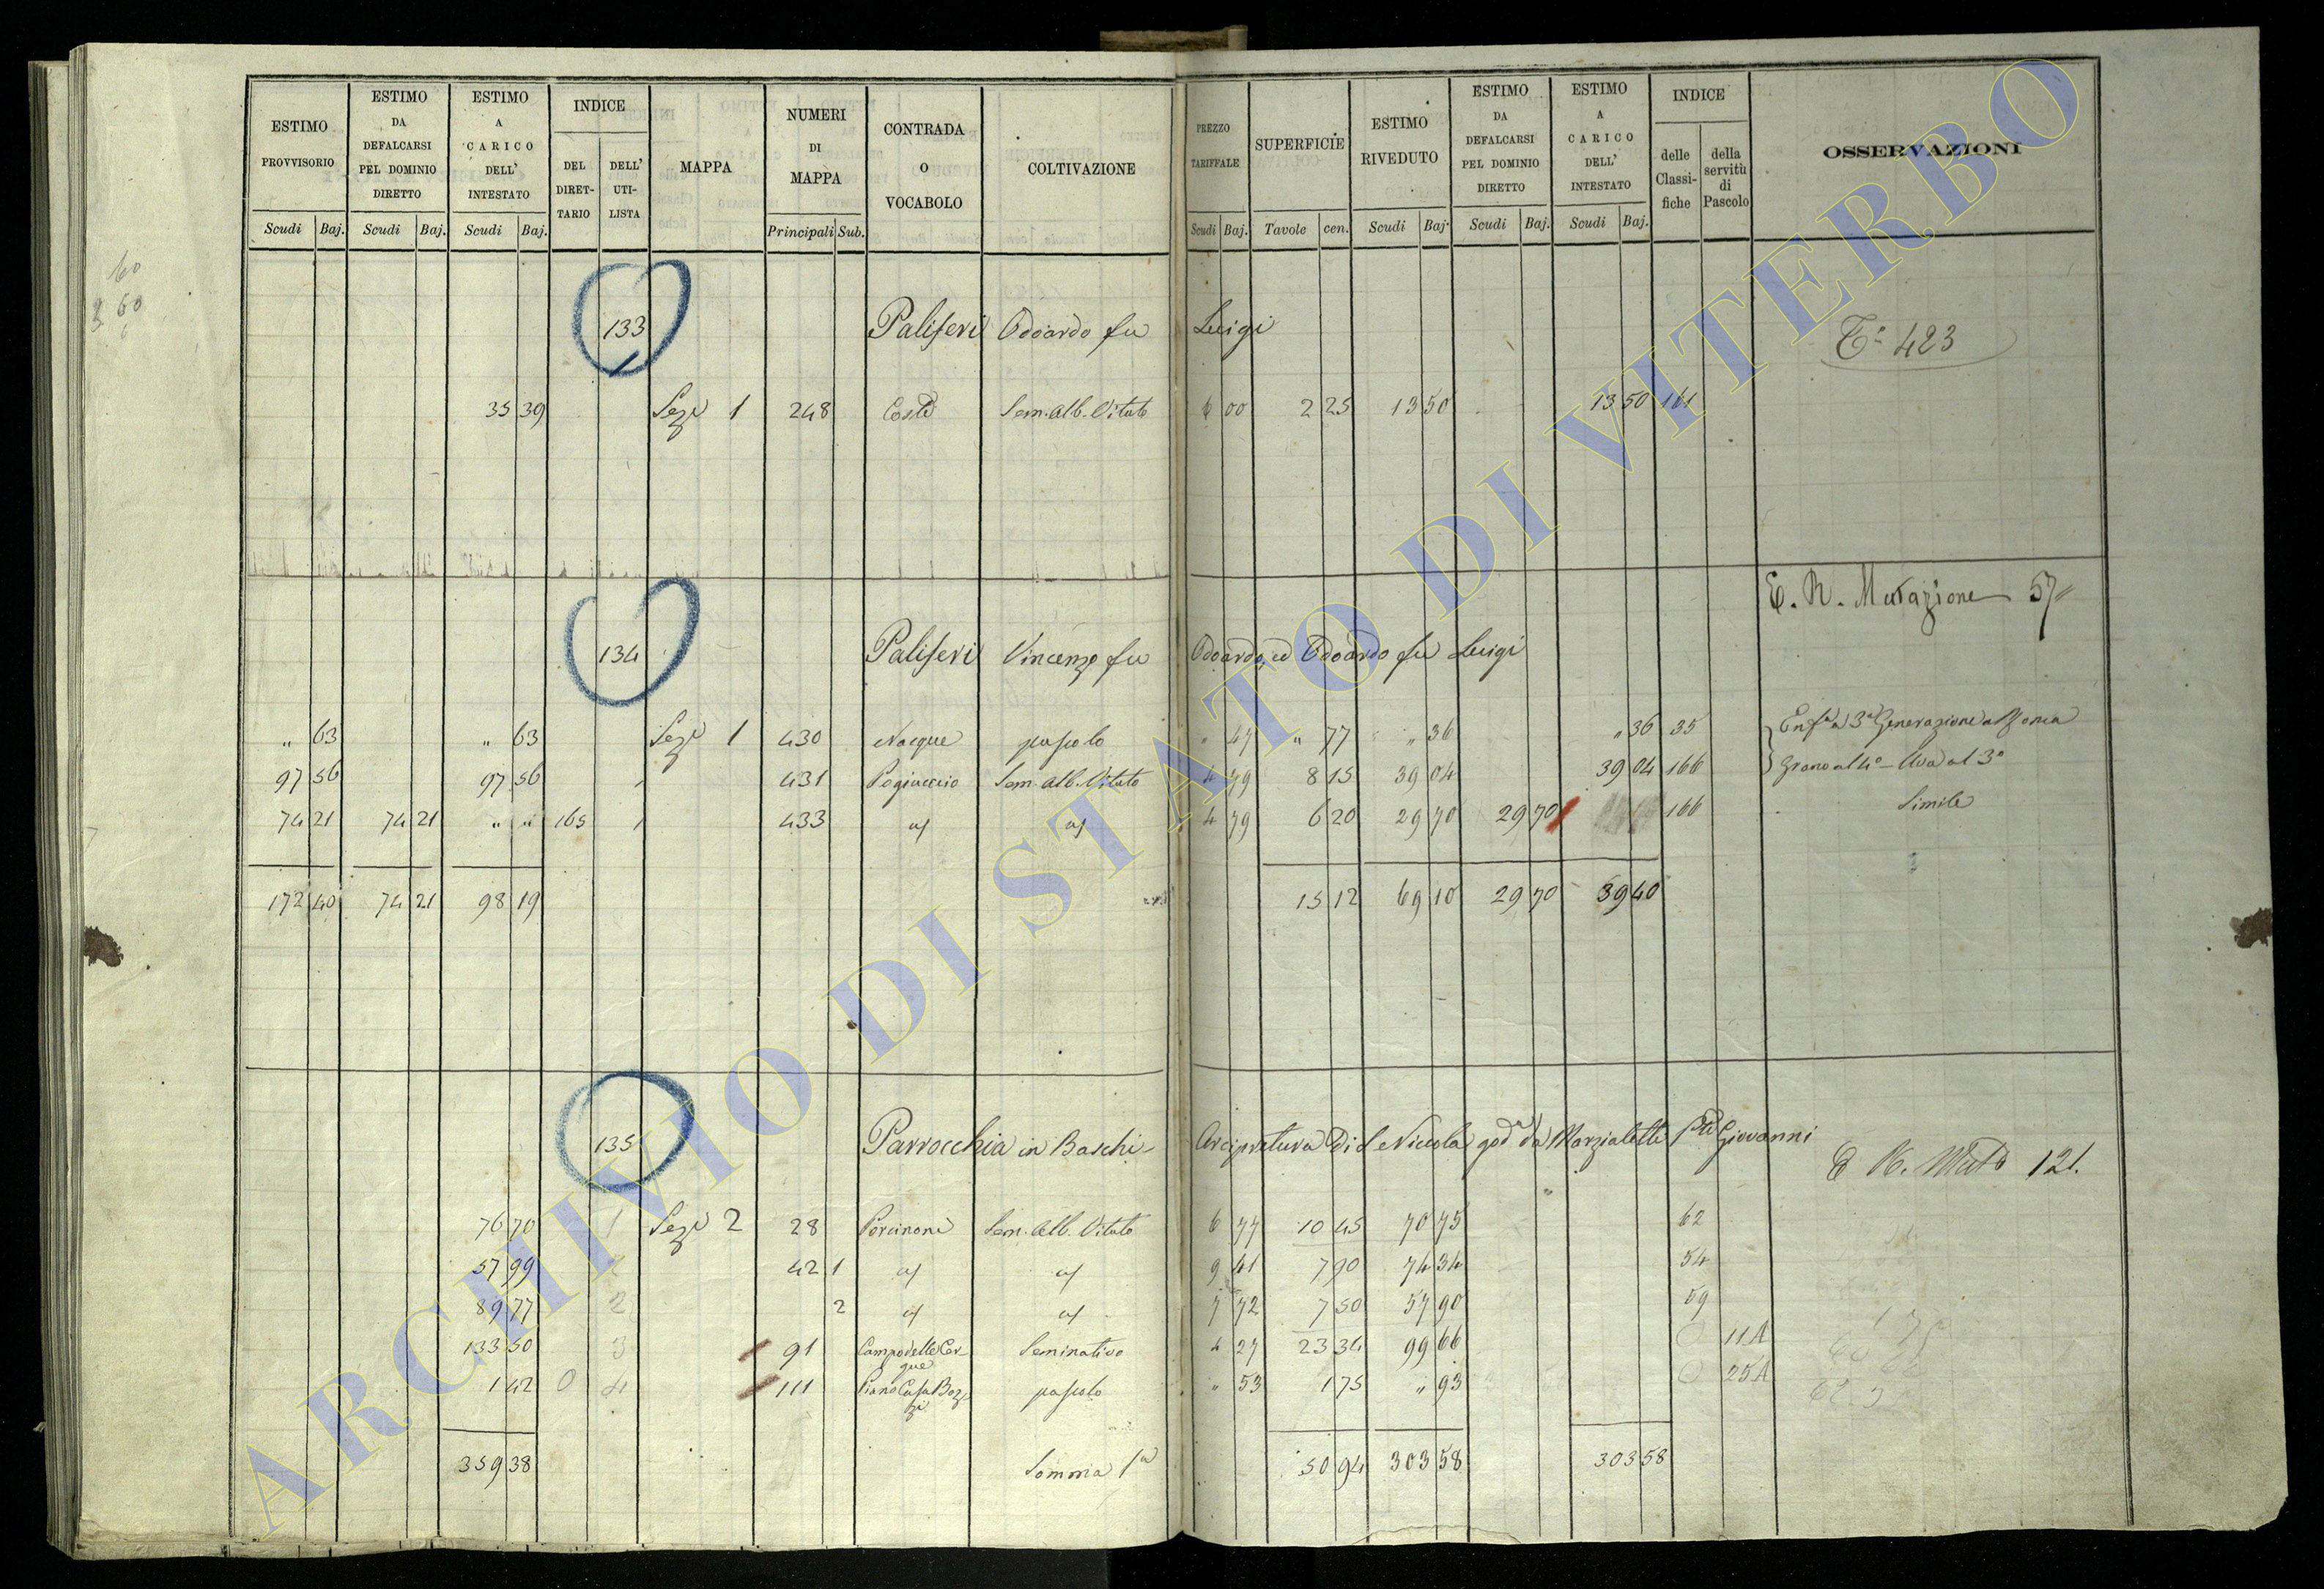 ESTIMO PROVVISORIO
Scudi Baj.
ESTIMO DA DEFALCARSI PEL DOMINIO DIRETTO
Scudi Baj.
ESTIMO A CARICO DELL' INTESTATO
Scudi Baj.
INDICE
DEL DIRET- TARIO
DELL' UTI- LISTA
MAPPA
NUMERI DI MAPPA
Principali Sub.
CONTRADA O VOCABOLO
COLTIVAZIONE
PREZZO TARIFFALE
Scudi Baj.
SUPERFICIE
Tavole cen.
ESTIMO RIVEDUTO
Scudi Baj.
ESTIMO DA DEFALCARSI PEL DOMINIO DIRETTO
Scudi Baj.
ESTIMO A CARICO DELL' INTESTATO
Scudi Baj.
INDICE
delle Classi- fiche
della servitù di Pascolo
OSSERVAZIONI
60
60
133 Paliferi Odoardo fu Luigi
423
35 39 Sezº 1 248 Coste Sem. alb. Vitato 6 00 2 25 13 50 13 50 161
E. R. Mutazione 57
134 Paliferi Vincenzo fu Odoardo, ed Odoardo fu Luigi
" 63 " 63 Sezº 1 430 Nacque pascolo " 47 " 77 " 36 " 36 35
97 56 97 56 431 Pogiuccio Sem. alb. Vitato 4 79 8 15 39 04 39 04 166
74 21 74 21 " " 165 433 4 79 6 20 29 70 29 70 166 Simile
172 40 74 21 98 19 15 12 69 10 29 70 39 40
135 Parrocchia in Baschi - Arcipretura di S. Niccola godª da Marzialetti Giovanni
121.
76 70 1 Sezº 2 28 Porcinone Sem. Alb. Vitato 6 77 10 45 70 75 62
57 99 42 1 9 41 7 90 74 34 54
89 77 2 2 7 72 7 50 57 90 59
133 50 3 91 Campo delle Cer- que Seminativo 4 27 23 34 99 66 11A
1 42 0 4 111 Piano Casa Boz- zi pascolo " 53 1 75 " 93 25A
359 38 Somma 50 94 303 58 303 58
ARCHIVIO DI STATO DI VITERBO